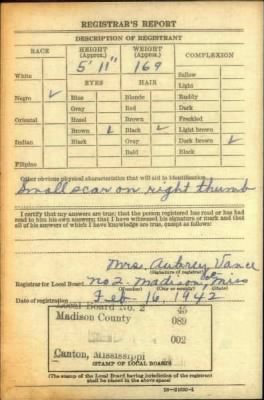 REGISTRAR'S REPORT
DESCRIPTION OF REGISTRANT
RACE HEIGHT (Approx.) WEIGHT (Approx.) COMPLEXION
5' 11" 169
White Sallow
EYES HAIR Light
Negro ✓ Blue Blonde Ruddy
Gray Red Dark
Oriental Hazel Brown Freckled
Brown ✓ Black ✓ Light brown
Indian Black Gray Dark brown ✓
Bald Black
Filipino
Other obvious physical characteristics that will aid in identification
Small scar on right thumb
I certify that my answers are true; that the person registered has read or has had
read to him his own answers; that I have witnessed his signature or mark and that
all of his answers of which I have knowledge are true, except as follows:
Mrs. Aubrey Vance
(Signature of registrar)
Registrar for Local Board No 2 Madison Co Miss
(Number) (City or county) (State)
Date of registration Feb 16, 1942
Local Board No. 2 45
Madison County 089
002
Canton, Mississippi
(STAMP OF LOCAL BOARD)
(The stamp of the Local Board having jurisdiction of the registrant
shall be placed in the above space)